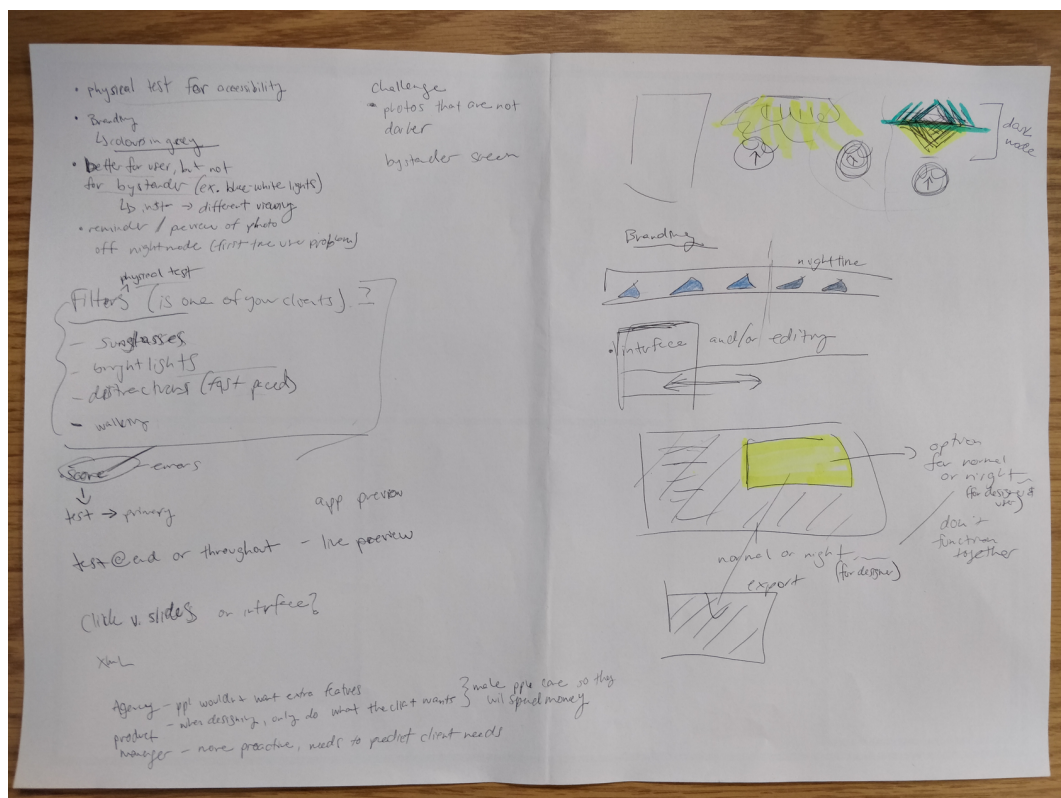 • physical test for accessibility
• Branding
↳ colours in grey
• better for user, but not
for bystander (ex. blue-white lights)
↳ insta → different viewing
• reminder / preview of photo
off nightmode (first time user problem)
physical test
Filters (is one of your clients)...?
- sunglasses
- bright lights
- distractions (fast paced)
- walking
score - errors
test → primary
app preview
test @ end or throughout - live preview
Click v. slides on intrface?
Agency - ppl wouldn't want extra features
product - when designing, only do what the client wants } make pple care so they
will spend money
manager - more proactive, needs to predict client needs
challenge
• photos that are not
darker
bystander screen
dark
mode
Branding
nighttime
• intrface and/or editing
option
for normal
or night
(for designer &
user)
don't
function
together
normal or night
(for designer)
export